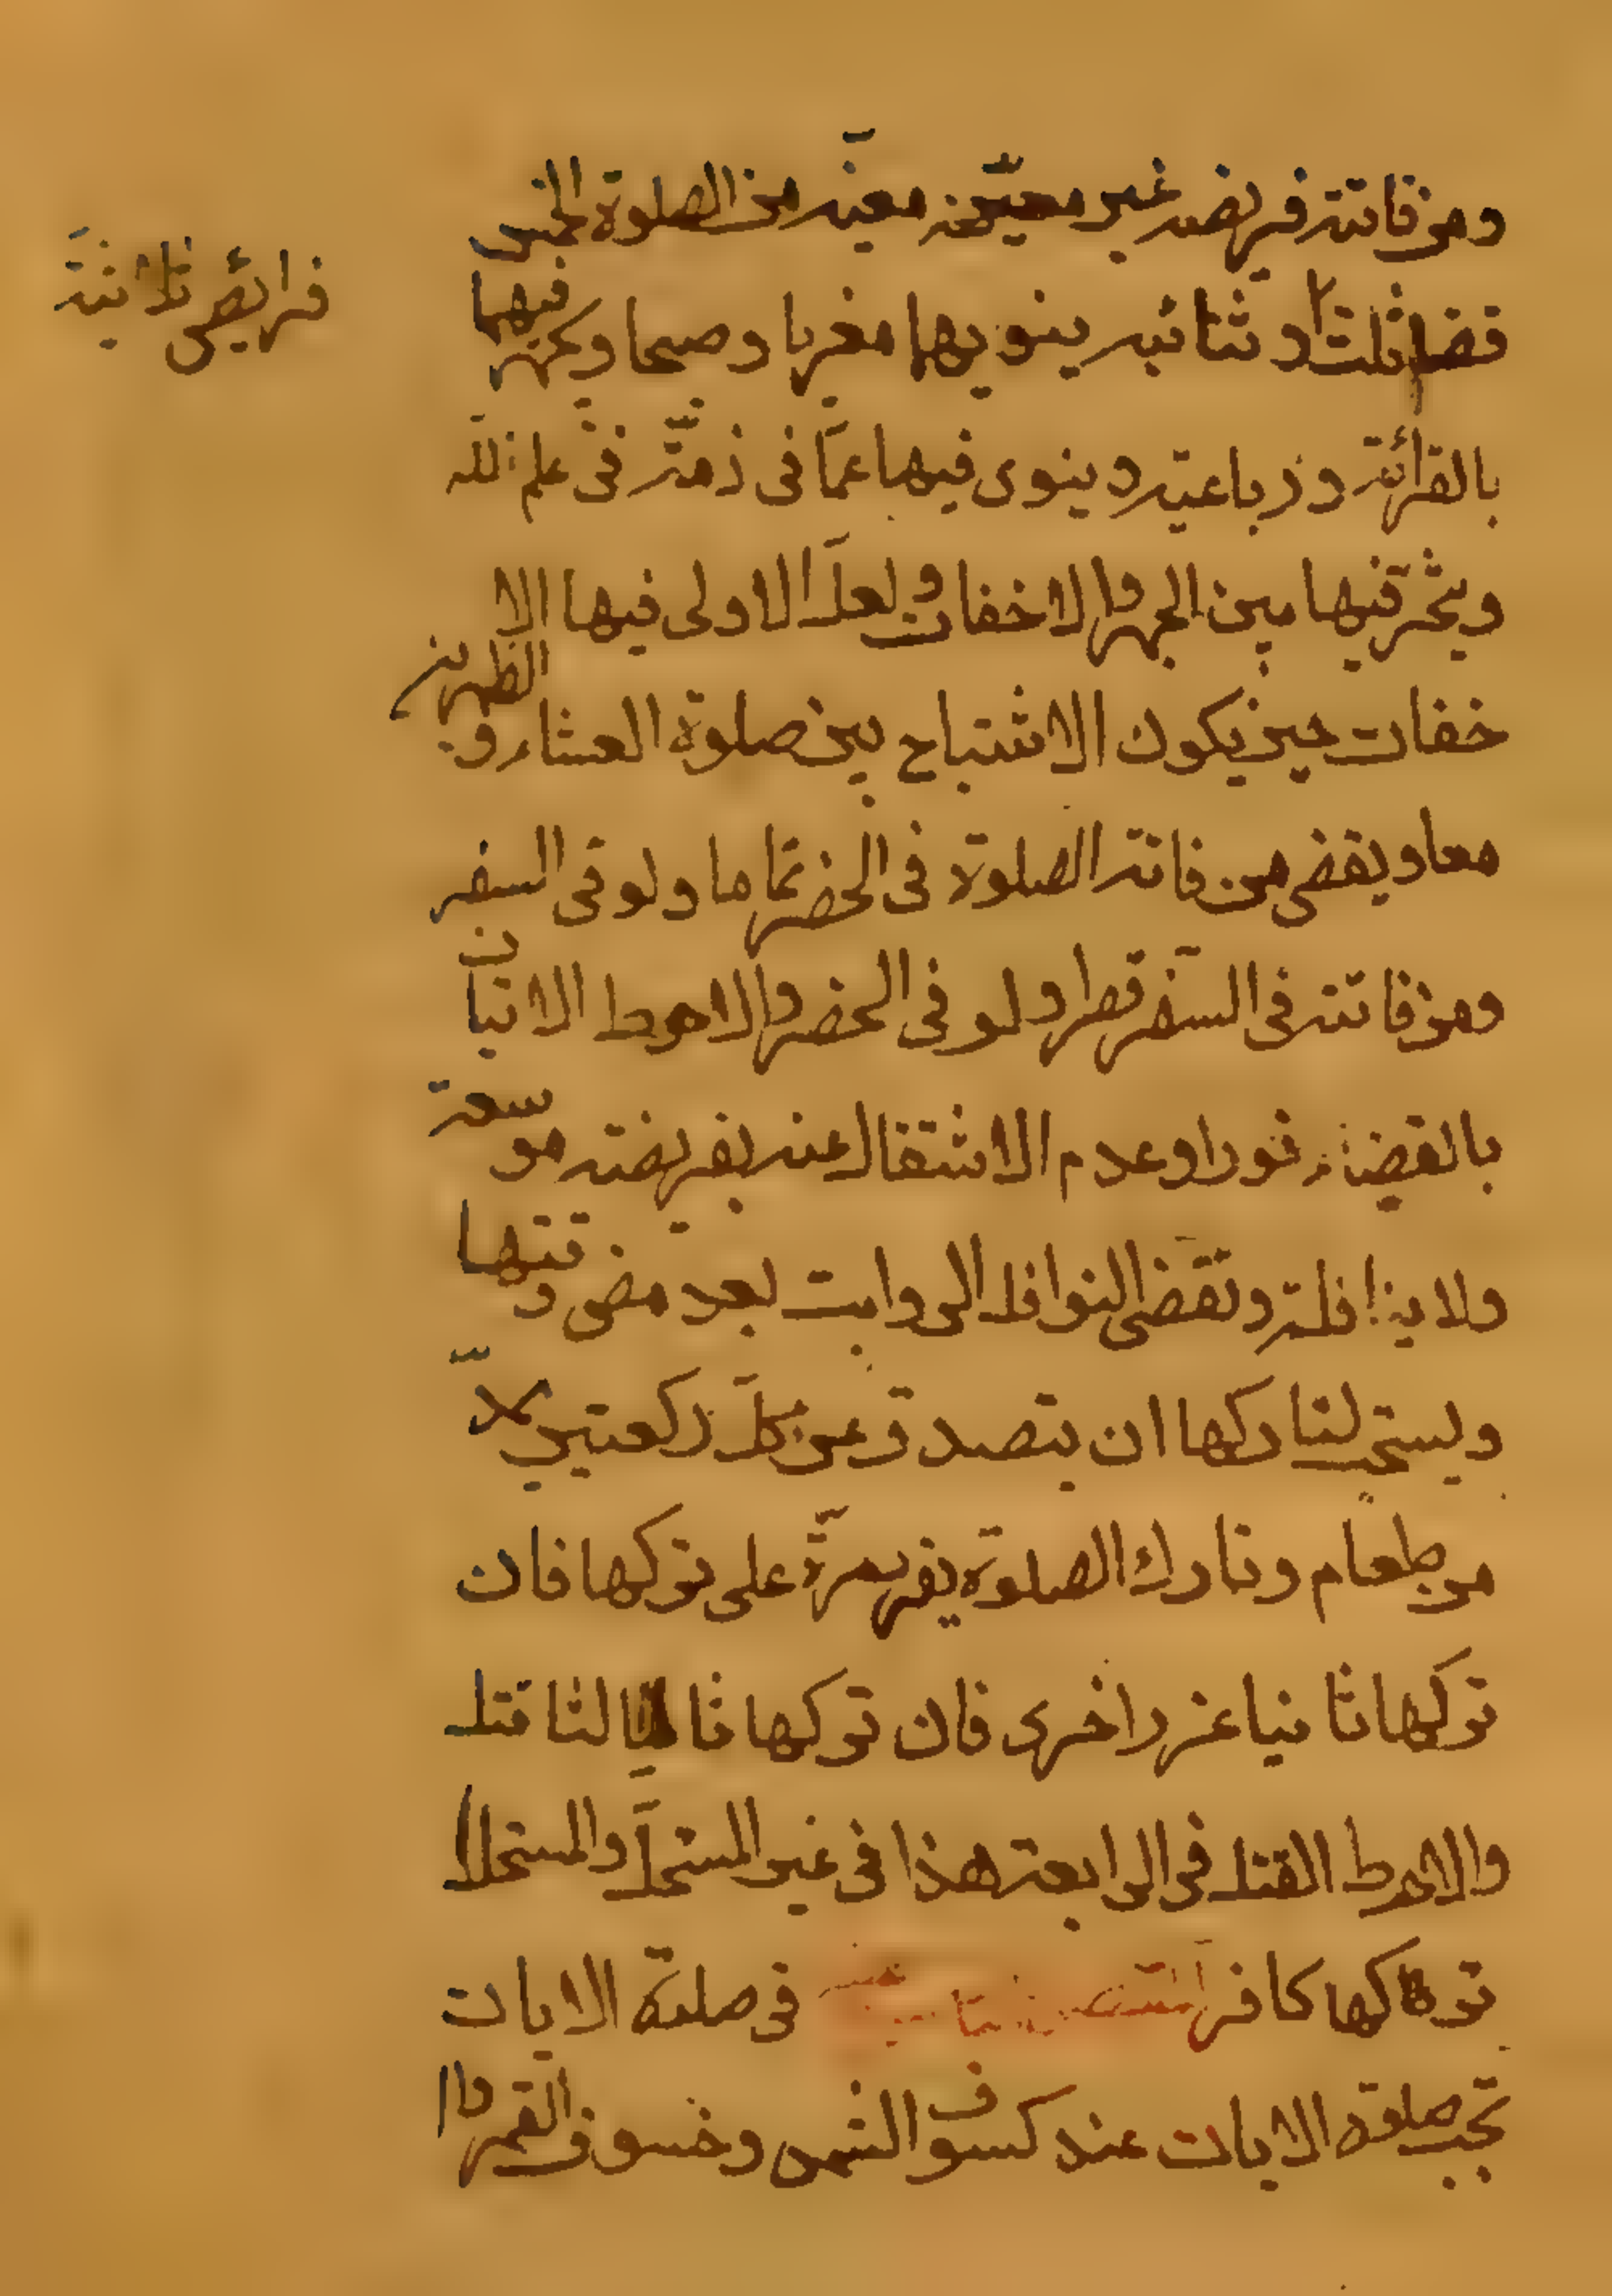 ومن فاتته فريضه غير معينه معينه من الصلوة الخمس
قضا ثلث و ثنائيه ينوي بها مغربا و صبحا و يجهر فيها
فرايض ثلاثية ثنائية
بالقرائة و رباعية و ينوى فيها عمّا فى ذمّته فى علم الله
ويخيّر فيها بين الجهر والاخفات ولعلّ الاولى فيها الا
خفات حين يكون الاشتباح بين صلوة العشاء و الظهرين
معا و يقضى من فاتته الصلوة فى الحضر تماما و لو فى السفر
ومن فاتته فى السفر قصرا و لو فى الحضر والاحوط الاتيان
بالقضاء فورا وعدم الاشتغال عنه بفريضته موسعة
ولا ينافلة و تقضى النوافل الرواتب بعد مضى وقتها
و يستحب لتاركها ان يتصدق عن كلّ ركعتين بمدّ
من طعام و تارك الصلوة يعزر مرّة على تركها فان
تركها ثانيا عزر اخرى فان تركها ثا لثا قتل
والاحوط القتل فى الرابعة هذا فى غير المستحلّ والمستحل ا
تركها كافر فى صلوة الايات
تجب صلوة الايات عند كسوف الشمس و خسوف القمر وا